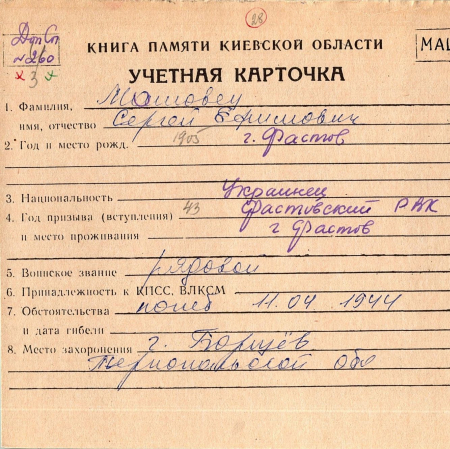 28
Доп Сп
МАШ
N 260
КНИГА ПАМЯТИ КИЕВСКОЙ ОБЛАСТИ
3
УЧЕТНАЯ КАРТОЧКА
1. Фамилия, Машовец
имя, отчество Сергей Ефимович
2. Год и место рожд. 1905 г. Фастов
3. Национальность Украинец
4. Год призыва (вступления) 43 Фастовский РВК
и место проживания г Фастов
5. Воинское звание рядовой
6. Принадлежность к КПСС, ВЛКСМ
7. Обстоятельства погиб 11.04 1944
и дата гибели
8. Место захоронения г. Борщёв
Тернопольской обл